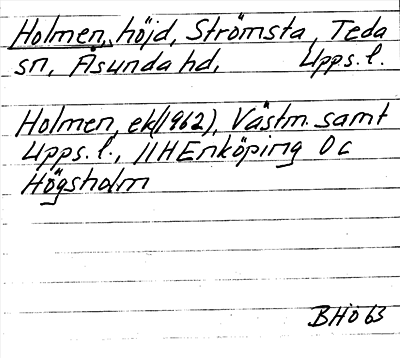 Holmen, höjd, Strömsta, Teda
sn, Åsunda hd, Upps.l.
Holmen, ek(1962), Västm. samt
Upps.l., 11H Enköping 0c
Högsholm
BHö 63